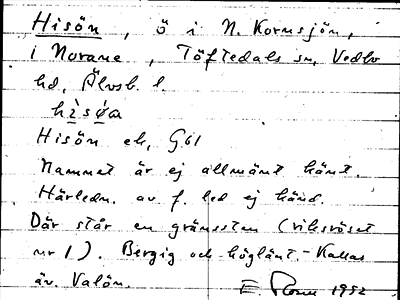 Hisön, ö i N. Kornsjön,
i Norane, Töftedals sn, Vedbo
hd, Älvsb. l.
hìsø̀a
Hisön ek, G61
Namnet är ej allmänt känt.
Härledn. av f. led ej känd.
Där står en gränssten (riksröset
nr 1). Bergig och höglänt. - Kallas
äv. Valön. E. 1952